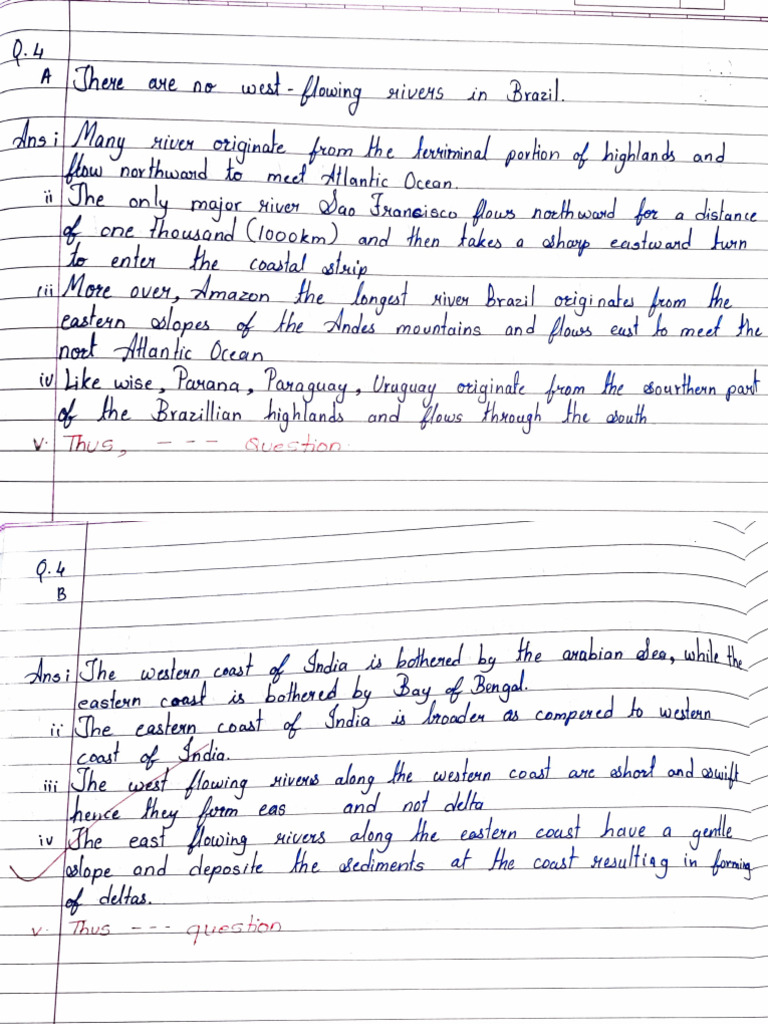 Q.4
A There are no west-flowing rivers in Brazil.
Ans i Many river originate from the terriminal portion of highlands and
flow northward to meet Atlantic Ocean.
ii The only major river Sao Francisco flows northward for a distance
of one thousand (1000km) and then takes a sharp eastward turn
to enter the coastal strip
iii More over, Amazon the longest river Brazil originates from the
eastern slopes of the Andes mountains and flows east to meet the
nort Atlantic Ocean
iv Like wise, Parana, Paraguay, Uruguay originate from the sourthern part
of the Brazillian highlands and flows through the south
v. Thus, --- Question.
Q.4
B
Ans i The western coast of India is bothered by the arabian Sea, while the
eastern coast is bothered by Bay of Bengal.
ii The eastern coast of India is broader as compered to western
coast of India.
iii The west flowing rivers along the western coast are short and swift
hence they form eas and not delta
iv The east flowing rivers along the eastern coast have a gentle
slope and deposite the sediments at the coast resulting in forming
of deltas.
v. Thus --- question